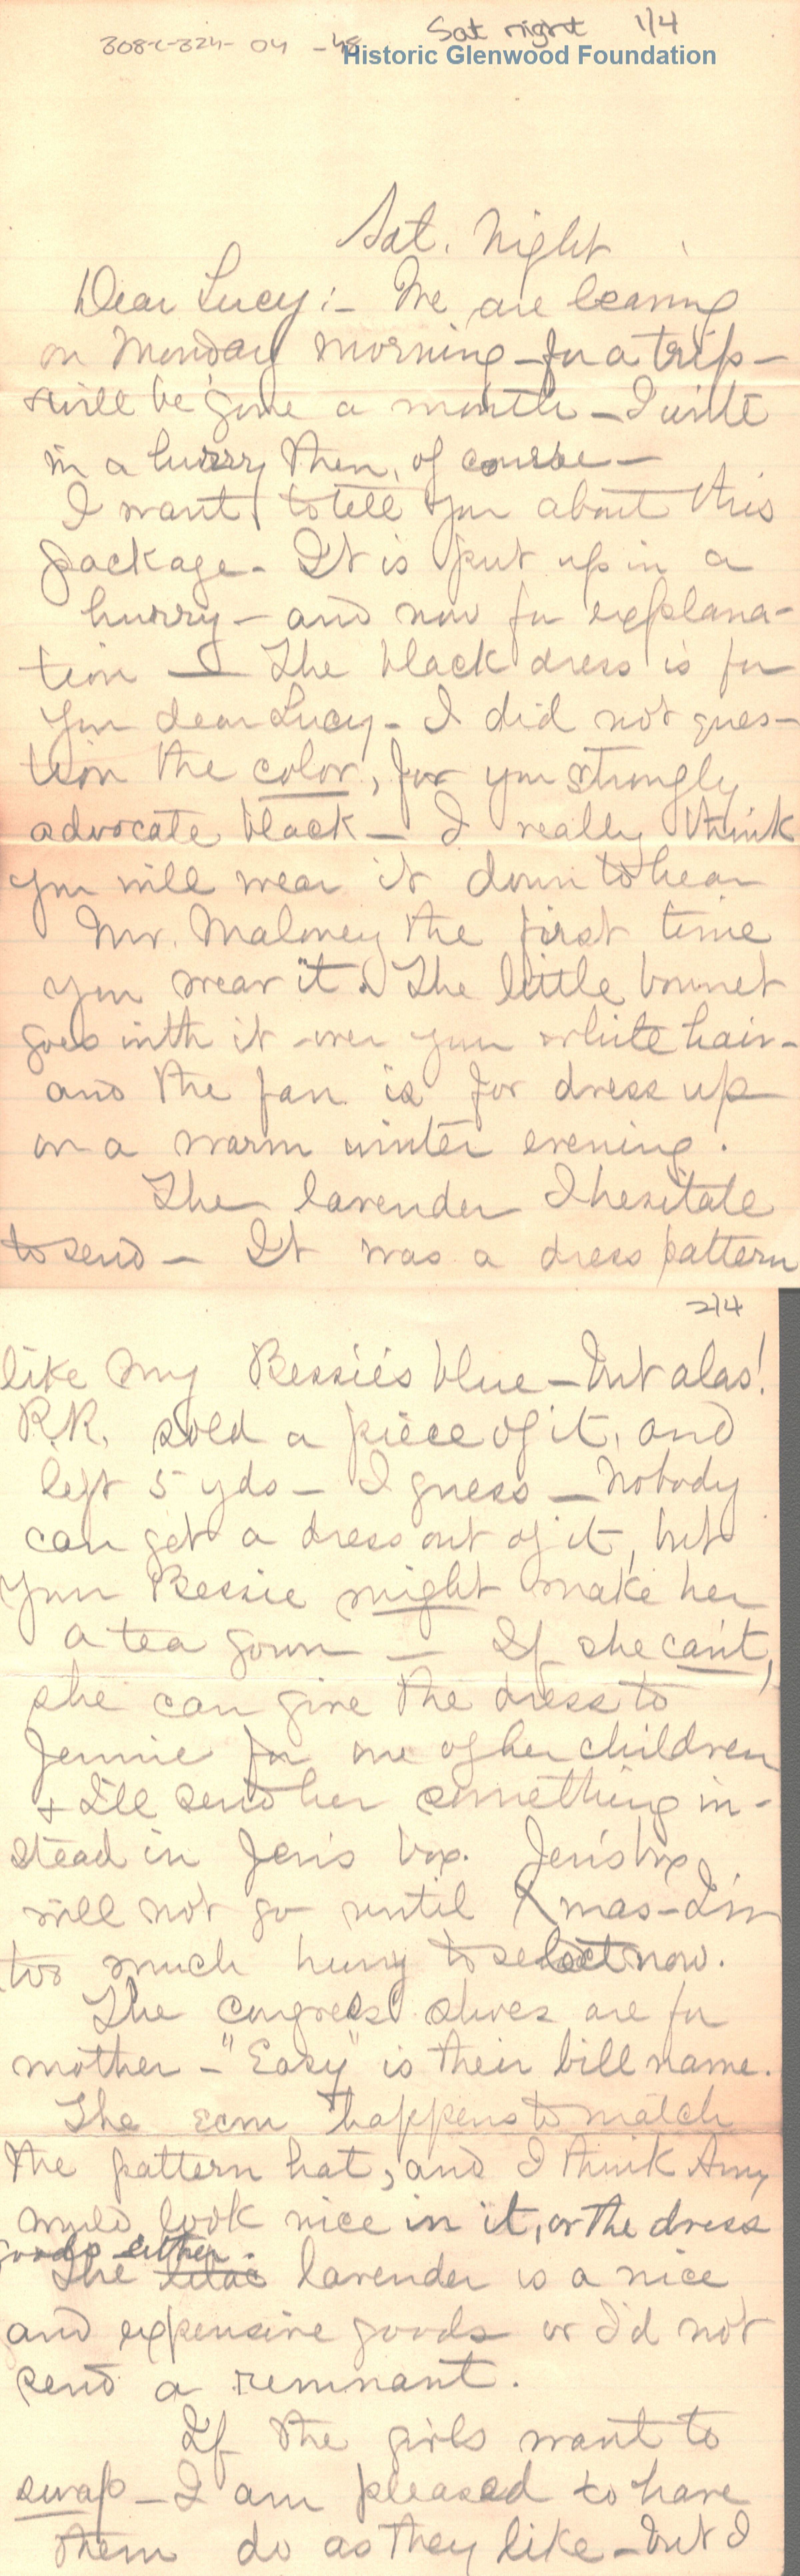 Sat night 1/4
308-1-324- 04 -48
Historic Glenwood Foundation
Sat. Night
Dear Lucy:- We are leaving
on Monday morning - for a trip -
will be gone a month - I write
in a hurry then, of course -
I want to tell you about this
package - It is put up in a
hurry - and now for explana-
tion - The black dress is for
you dear Lucy - I did not ques-
tion the color, for you strongly
advocate black - I really think
you will wear it down to hear
Mr. Maloney the first time
you wear it. The little bonnet
goes with it over your white hair -
and the fan is for dress up
on a warm winter evening.
The lavender I hesitate
to send - It was a dress pattern
2/4
like my Bessie's blue - but alas!
R.R. sold a piece of it, and
left 5 yds - I guess - Nobody
can get a dress out of it, but
your Bessie might make her
a tea gown - If she can't,
she can give the dress to
Jennie for one of her children
+ I'll send her something in-
stead in Jen's box. Jen's box
will not go until Xmas - I'm
too much hurry to select now.
The congress shoes are for
mother - "Easy" is their bill name.
The ecru happens to match
the pattern hat, and I think Amy
would look nice in it, or the dress
goods either.
The lilac lavender is a nice
and expensive goods or I'd not
send a remnant.
If the girls want to
swap - I am pleased to have
them do as they like - but I